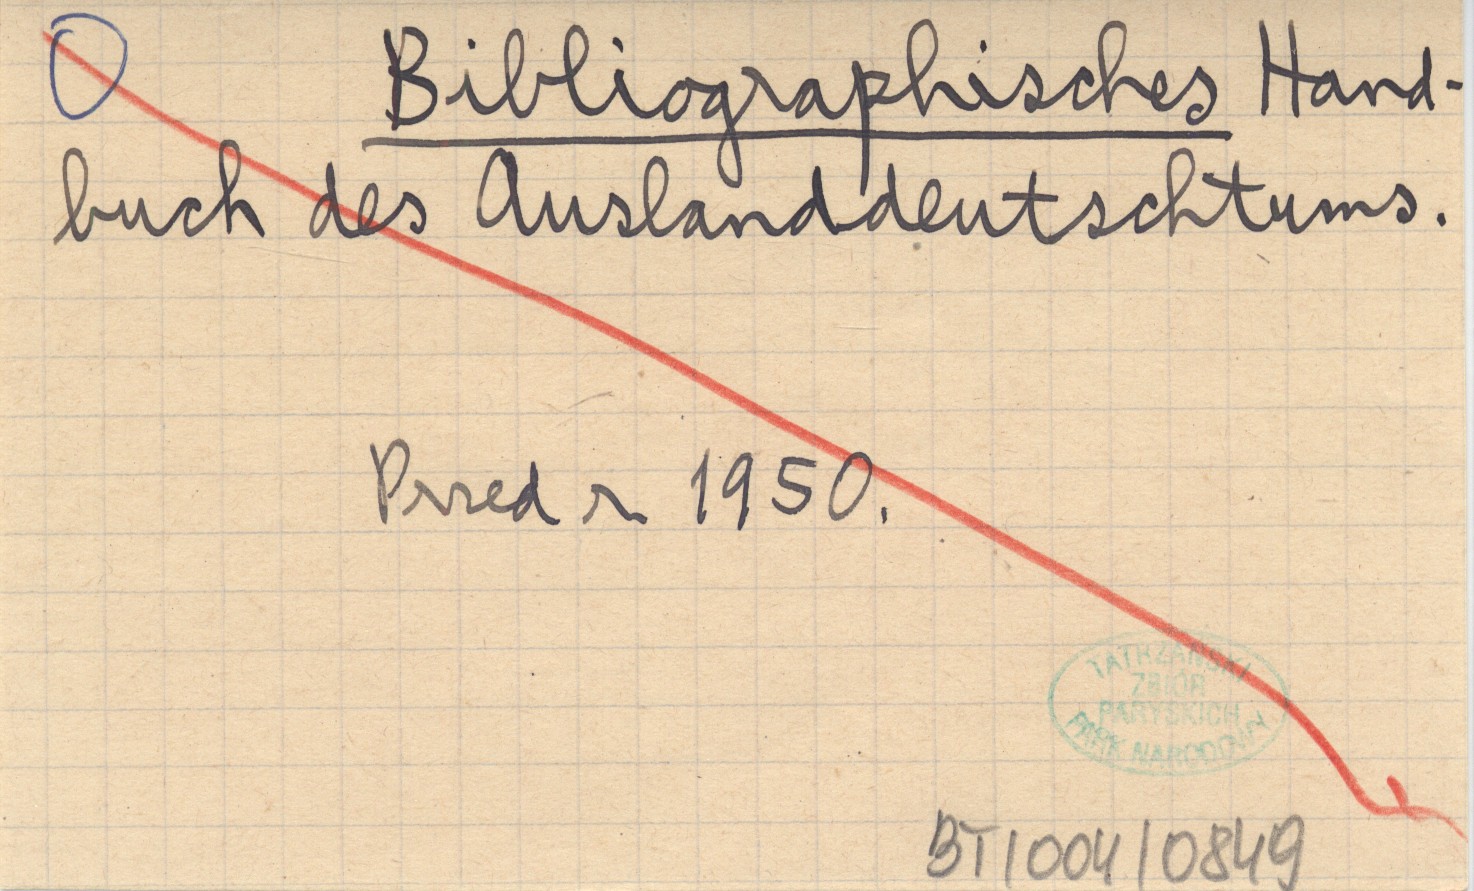 Bibliographisches Hand-
buch des Auslanddeutschtums.
Przed r. 1950.
TATRZAŃSKI
ZBIÓR
PARYSKICH
PARK NARODOWY
BT/004/0849